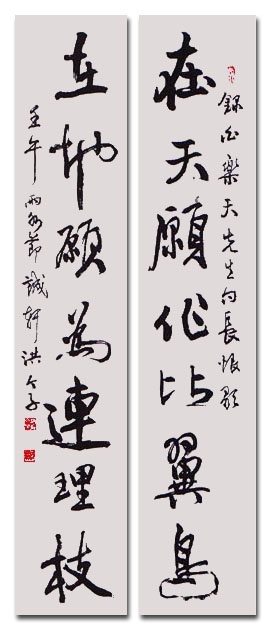 在天願作比翼鳥
錄白樂天先生句長恨歌
在地願為連理枝
壬午雨水節誠軒洪介子